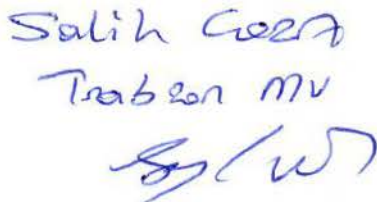 Salih Cora
Trabzon MV